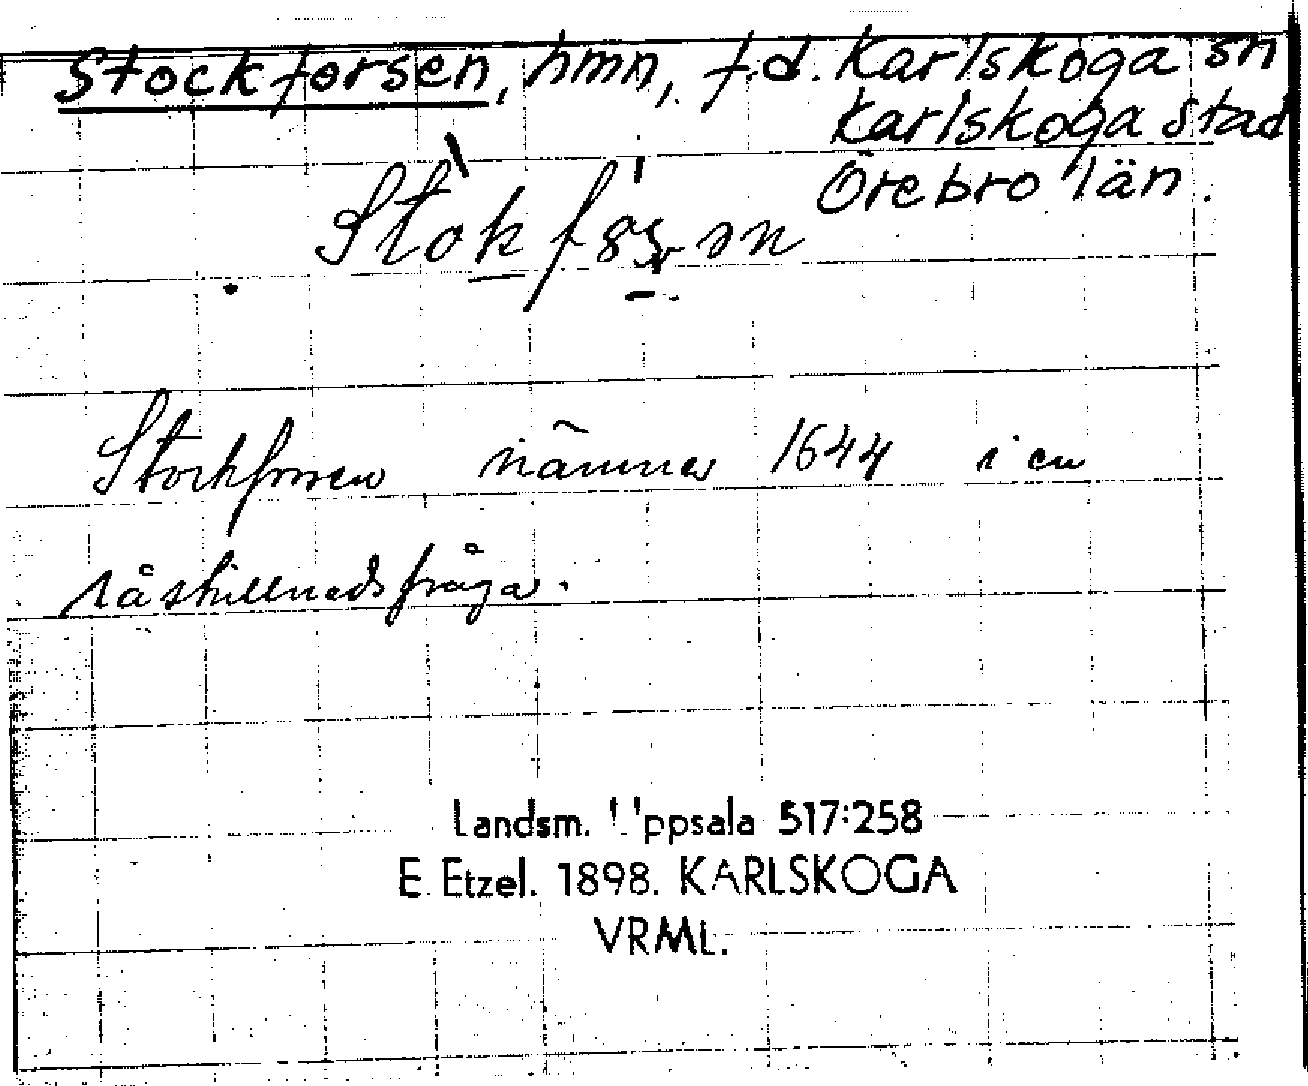 Stockforsen, hmn, f.d. Karlskoga sn
Karlskoga stad
Örebro län.
Stockforsen nämnes 1644 i en
råskillnadsfråga.
Landsm. Uppsala 517:258
E. Etzel. 1898. KARLSKOGA
VRML.